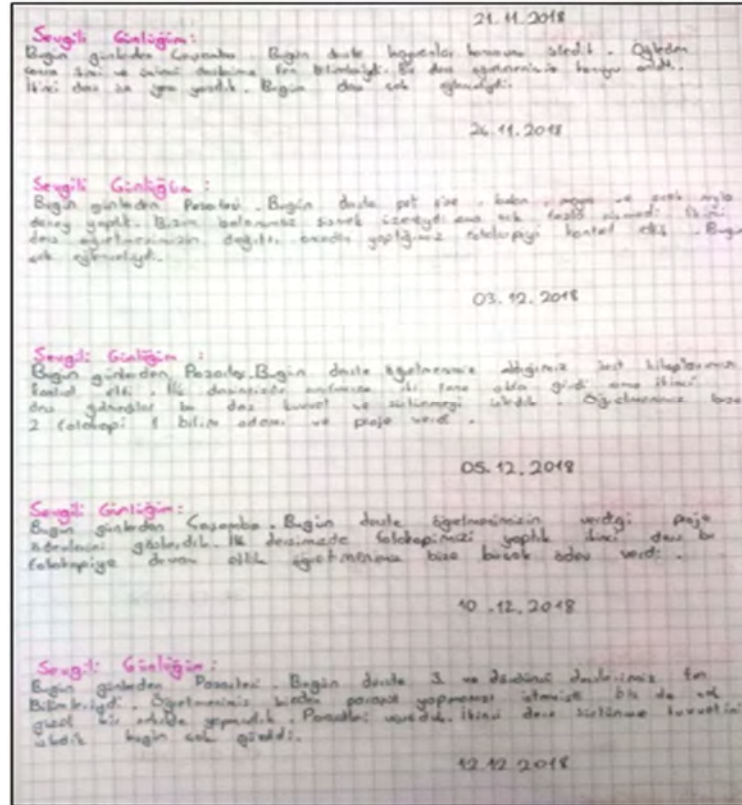 21.11.2018
Sevgili Günlüğüm:
Bugün günlerden Çarşamba. Bugün derste hayvanlar konusunu işledik. Öğleden
sonra ve dersimiz fen bilimleriydi. Bir ders öğretmenimiz konuyu
İkinci ders yazdık. Bugün ders çok eğlenceliydi.
26.11.2018
Sevgili Günlüğüm:
Bugün günlerden Pazartesi. Bugün derste pet şişe, balon, maya ve sıcak suyla
deney yaptık. Bizim balonumuz şişmek üzereydi ama çok fazla şişmedi. İkinci
ders öğretmenimizin dağıttı yaptığımız fotokopiyi kontrol ettik. Bugün
çok eğlenceliydi.
03.12.2018
Sevgili Günlüğüm:
Bugün günlerden Pazartesi. Bugün derste öğretmenimiz aldığımız test kitaplarımızı
kontrol etti. İlk dersimizde iki tane girdi ama ikinci
ders bu ders kuvvet ve sürtünmeyi işledik. Öğretmenimiz bize
2 fotokopi 1 bilim adamı ve proje verdi.
05.12.2018
Sevgili Günlüğüm:
Bugün günlerden Çarşamba. Bugün derste öğretmenimizin verdiği proje
ödevlerini gösterdik. İlk dersimizde fotokopimizi yaptık ikinci ders bu
fotokopiye devam ettik öğretmenimiz bize birçok ödev verdi.
10.12.2018
Sevgili Günlüğüm:
Bugün günlerden Pazartesi. Bugün derste 3. ve dördüncü derslerimiz fen
Bilimleriydi. Öğretmenimiz bizden paraşüt yapmamızı istemişti biz de çok
güzel bir şekilde yapmıştık. ikinci ders sürtünme kuvvetini
işledik bugün çok güzeldi.
12.12.2018